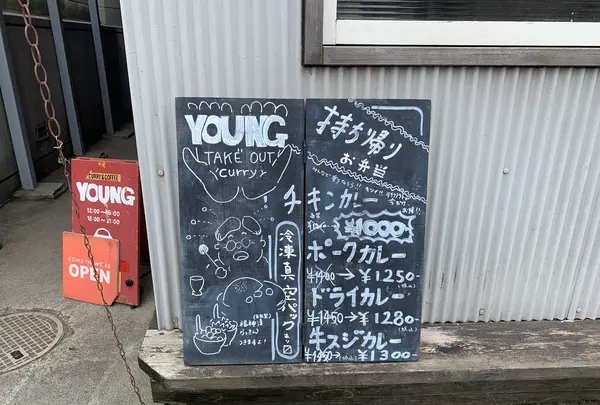 YOUNG
TAKE OUT
curry
冷凍真空パックあり
福神漬
らっきょ
つきますよ!
持ち帰り
お弁当
チキンカレー
¥1000
ポークカレー
¥1400→¥1250
ドライカレー
¥1450→¥1280
牛スジカレー
¥1450→¥1300
CURRY&COFFEE
YOUNG
12:00-15:00
18:00-21:00
COME IN WE'RE
OPEN